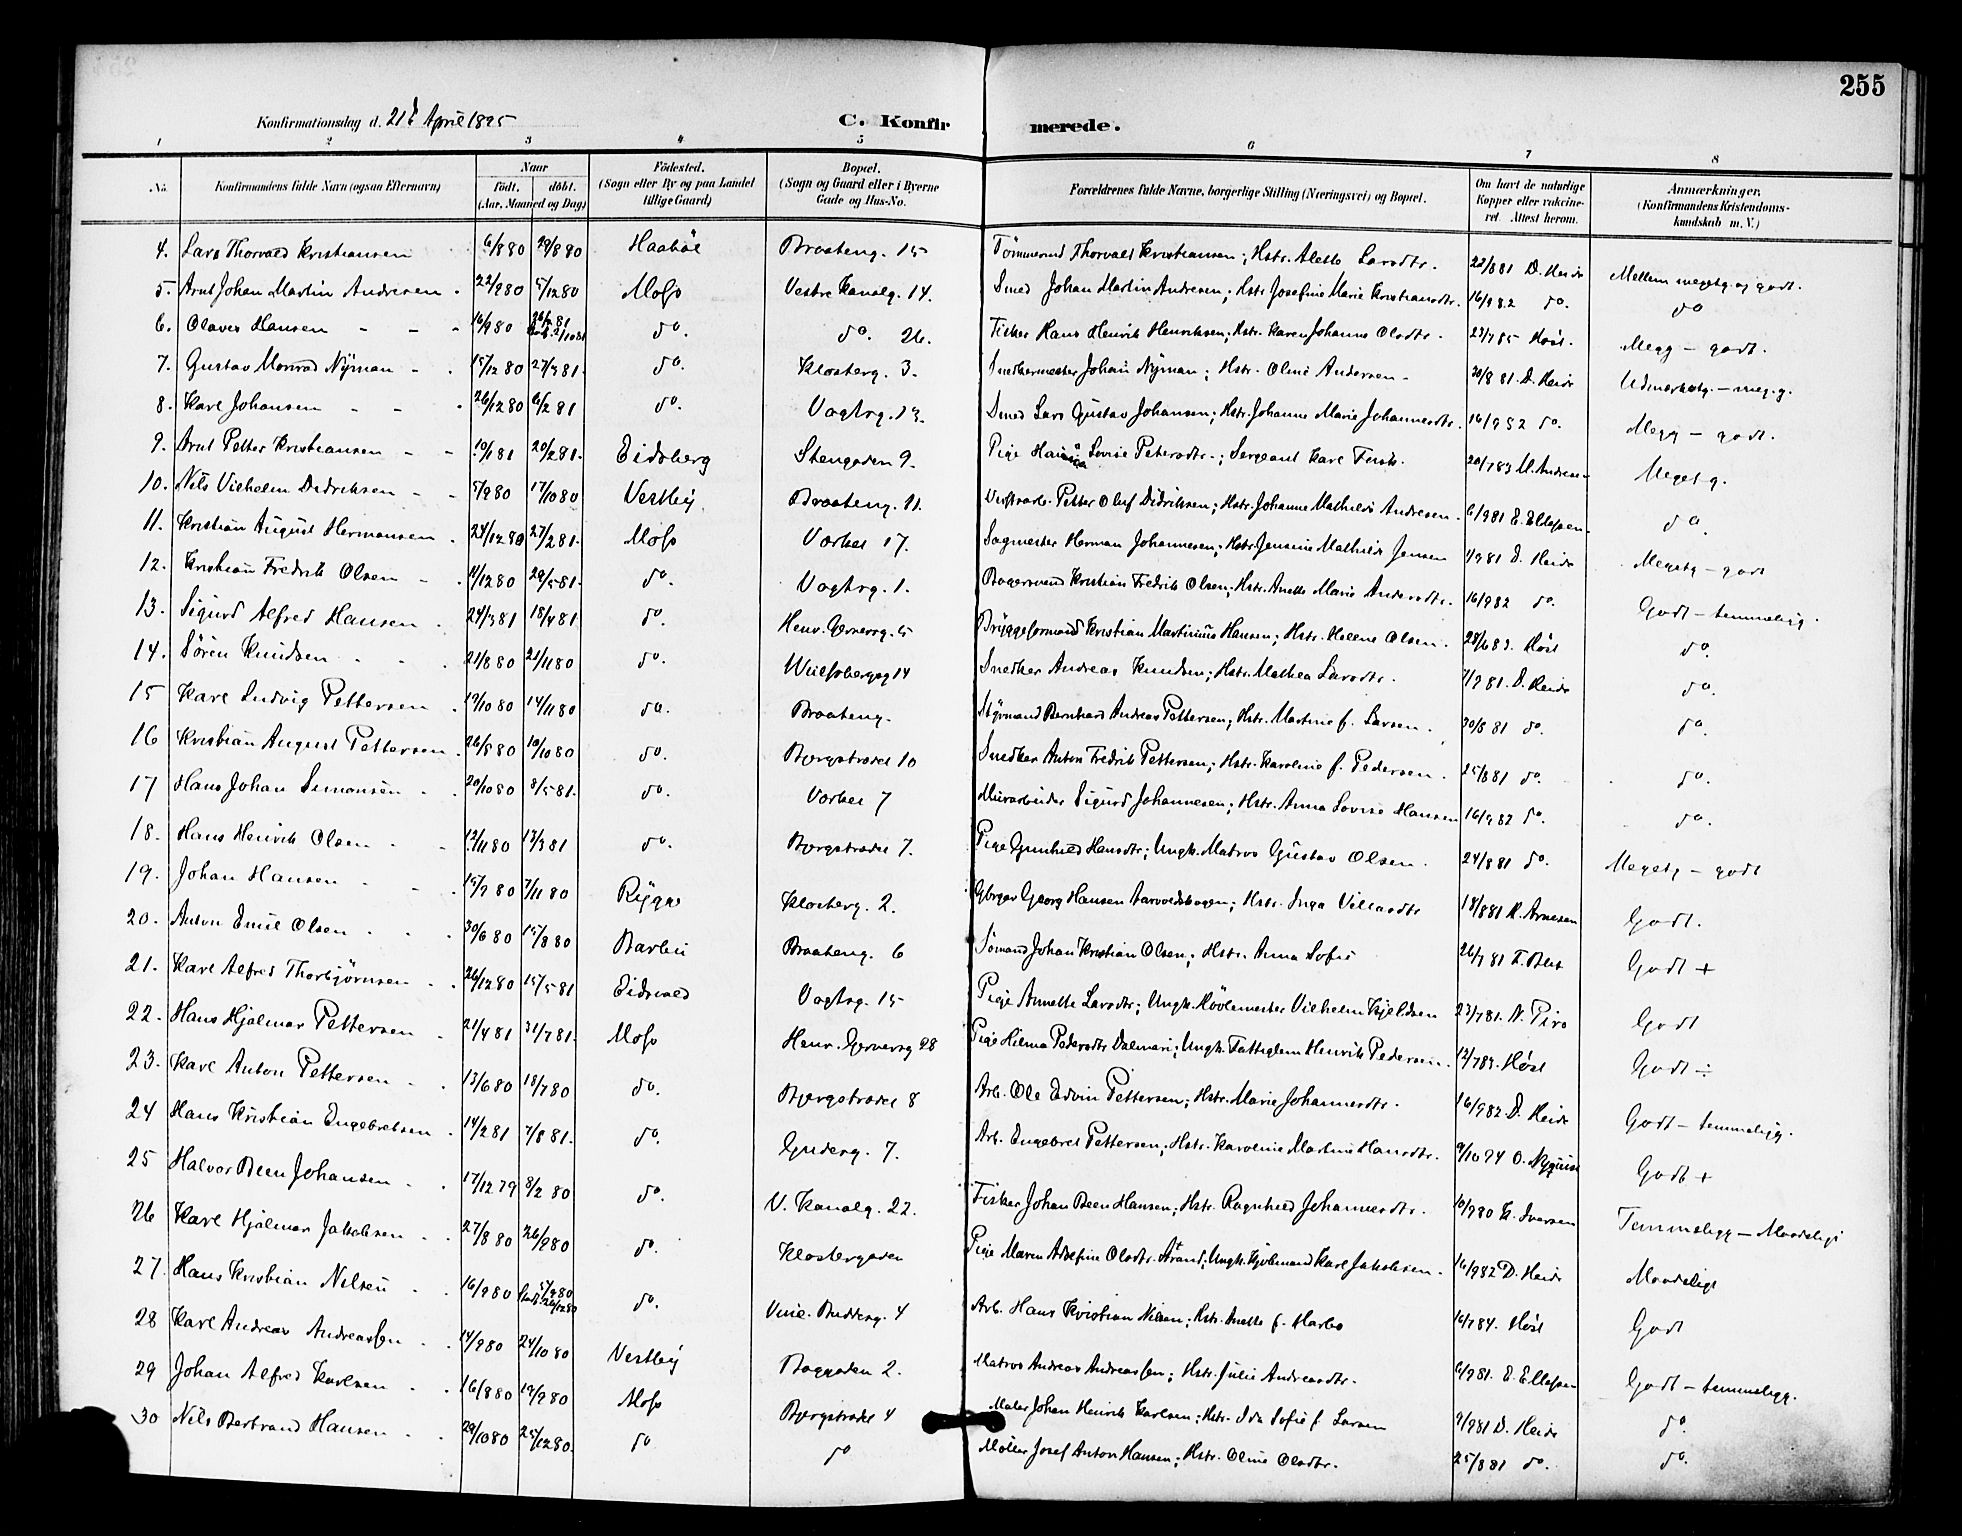 255
Konfirmationsdag d. 21d April 1895
C. Konfirmerede.
1 2 3 4 5 6 7 8
No.
Konfirmandens fulde Navn (ogsaa Efternavn)
Naar
født. døbt.
(Aar, Maaned og Dag)
Fødested.
(Sogn eller By og paa Landet
tillige Gaard)
Bopæl.
(Sogn og Gaard eller i Byerne
Gade og Hus-No.
Forældrenes fulde Navne, borgerlige Stilling (Næringsvei) og Bopæl.
Om havt de naturlige
Kopper eller vaccine-
ret. Attest herom.
Anmærkninger.
(Konfirmandens Kristendoms-
kundskab m. V.)
4. Lars Thorvald Kristiansen 6/8 80 29/8 80 Haabøl Braateng. 15 Tømmermd Thorvald Kristiansen; Hstr. Alette Larsdtr. 22/8 81 D. Heide Mellem megetg. og godt.
5. Arnt Johan Martin Andresen 22/9 80 5/12 80 Moss Vestre Kanalg. 14. Smed Johan Martin Andresen; Hstr Josefine Marie Kristiansdtr. 16/9 82 do. do
6. Olaves Hansen 16/9 80 do. do. 26. Fisker Hans Henrik Henriksen; Hstr. Karen Johanne Olsdtr. 23/7 85 Høst. Megg – godt.
7. Gustav Monrad Nyman 15/12 80 27/3 81. do. Klosterg. 3. Snedkermester Johan Nyman; Hstr. Oline Andersen 30/8 81 D. Heide Udmærketg. – meg. g.
8. Karl Johansen 26/12 80 6/2 81 do. Vogtsg. 13. Smed Lars Gustav Johansen; Hstr. Johanne Marie Johannesdtr. 16/9 82 do. Megg – godt.
9. Arnt Petter Kristiansen 10/1 81 20/2 81. Eidsberg Stengaden 9. Pige Lovise Petersdtr.; Sergeant Karl 20/7 83 M. Andresen Meget g.
10. Nils Vilhelm Didriksen 5/9 80 17/10 80 Vestby Braateng. 11. Petter Oluf Didriksen; Hstr. Johanne Mathilde Andresen. 6/9 81 E. Ellefsen do.
11. Kristian August Hermansen 24/12 80 27/2 81. Moss Varbei 17. Sagmester Herman Johannesen; Hstr. Jensine Mathilde Jensen 1/9 81 D. Heide Megetg – godt
12. Kristian Fredrik Olsen 11/12 80 29/5 81. do. Vogtsg. 1. Bagersvend Kristian Fredrik Olsen; Hstr. Anette Marie Andersdtr. 16/9 82 do. Godt – temmeligg.
13. Sigurd Alfred Hansen 24/3 81 18/4 81. do. Henr. Gernersg. 5 Bryggeformand Kristian Martinius Hansen; Hstr. Helene Olsen. 28/6 83. Høst do.
14. Søren Knudsen 21/8 80 21/11 80 do. Wulfsbergsg 14 Snedker Andreas Knudsen; Hstr. Mathea Larsdtr. 7/9 81. D. Heide do.
15 Karl Ludvig Pettersen 19/10 80 14/11 80 do. Braateng. Styrmand Bernhard Andreas Pettersen; Hstr. Martine f. Larsen. 30/8 81 do. do.
16 Kristian August Pettersen 26/8 80 10/10 80 do. Bjergstrædet 10 Snedker Anton Fredrik Pettersen; Hstr. Karoline f. Pedersen. 25/8 81 do. do.
17 Hans Johan Simonsen 20/10 80 8/5 81. do. Varbei 7 Murarbeider Sigurd Johannesen; Hstr. Anna Lovise Hansen 16/9 82 do. do.
18. Hans Henrik Olsen 12/11 80 13/3 81 do. Bjergstrædet 7. Pige Gunhild Hansdtr; Ungk. Matros Gustav Olsen. 24/8 81 do. Megetg – godt
19. Johan Hansen 15/9 80 7/11 80 Rygge Klosterg. 2. Georg Hansen Aarvoldskogen; Hstr. Inga Villasdtr 18/8 81 R. Arnesen Godt.
20. Anton Emil Olsen 30/6 80 15/8 80 Barbu Braateng. 6 Sømand Johan Kristian Olsen; Hstr. Anna Sofie 26/7 81 Godt +
21. Karl Alfred Thorbjørnsen 26/12 80 15/5 81 Eidsvold Vogtsg. 15 Pige Annette Larsdtr; Ungk. Høvlemester Vilhelm Kjeldsen 23/7 81. N. Godt
22. Hans Hjalmar Pettersen 21/4 81 31/7 81. Moss Henr. Gernersg 28 Pige Hilma Pedersdtr Dalmari; Ungk. Fattiglem Henrik Pedersen. 12/7 83. Høst Godt ÷
23. Karl Anton Pettersen 13/6 80 18/7 80 do. Bjergstrædet 8 Arb. Ole Edvin Pettersen; Hstr. Marie Johannesdtr. 16/9 82 D. Heide Godt – temmeligg.
24 Hans Kristian Engebretsen 14/2 81 7/8 81. do. Gudesg. 7. Arb. Engebret Pettersen; Hstr. Karoline Martine Hansdtr. 9/10 94 O. Nyquist Godt +
25 Halvor Been Johansen 17/12 79 8/2 80 do. V. Kanalg. 22. Fisker Johan Been Hansen; Hstr. Ragnhild Johannesdtr. 10/9 80 Iversen Temmeligg – Maadeligt
26 Karl Hjalmar Jakobsen 27/8 80 26/9 80 do. Klostergaden Pige Maren Adolfine Olsdtr. Strand; Ungk. Karl Jakobsen. 16/9 82 D. Heide Maadeligt
27. Hans Kristian Nilsen 16/9 80 do. Vinc. Buddesg. 4 Arb. Hans Kristian Nilsen; Hstr. Anette f. Harbo 16/7 84. Høst Godt
28 Karl Andreas Andreassen 14/9 80 24/10 80 Vestby Baggaden 2. Matros Andreas Andreassen; Hstr. Julie Andreasdtr. 6/9 81. E. Ellefsen Godt – temmeligg.
29 Johan Alfred Karlsen 16/8 80 19/9 80 Moss Bjergstrædet 4 Maler Johan Henrik Karlsen; Hstr. Ida Sofie f. Larsen 9/9 81 D. Heide do.
30 Nils Bertrand Hansen 29/10 80 25/12 80. do do Møller Josef Anton Hansen; Hstr. Oline Olsdtr. 25/8 81 do. do.